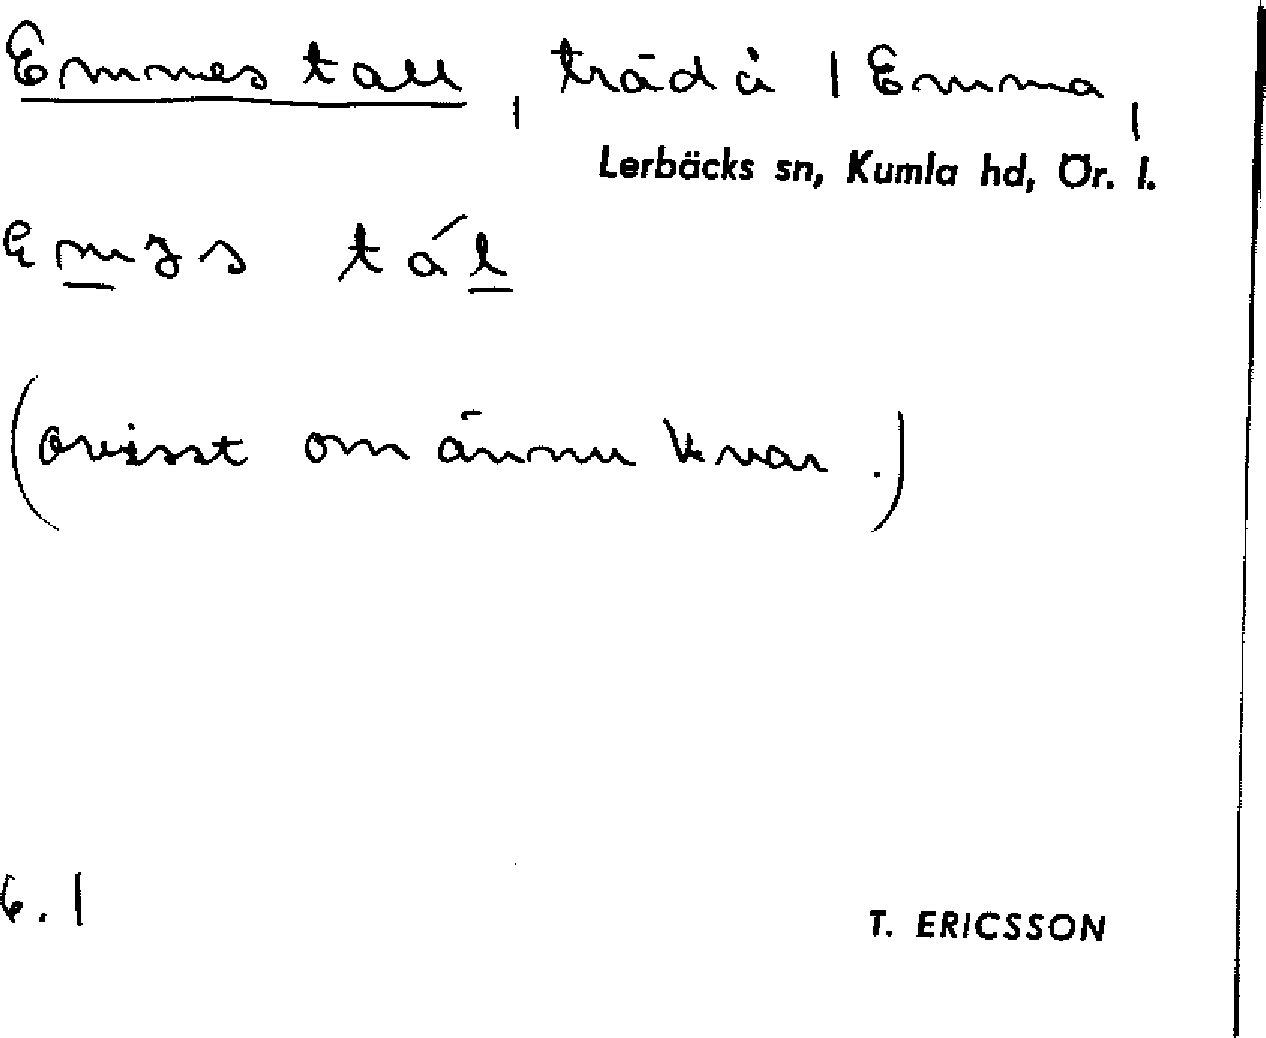 Emmes tall, träd å 1 Emma,
Lerbäcks sn, Kumla hd, Ör. l.
tál
(ovisst om ännu kvar.)
6.1
T. ERICSSON